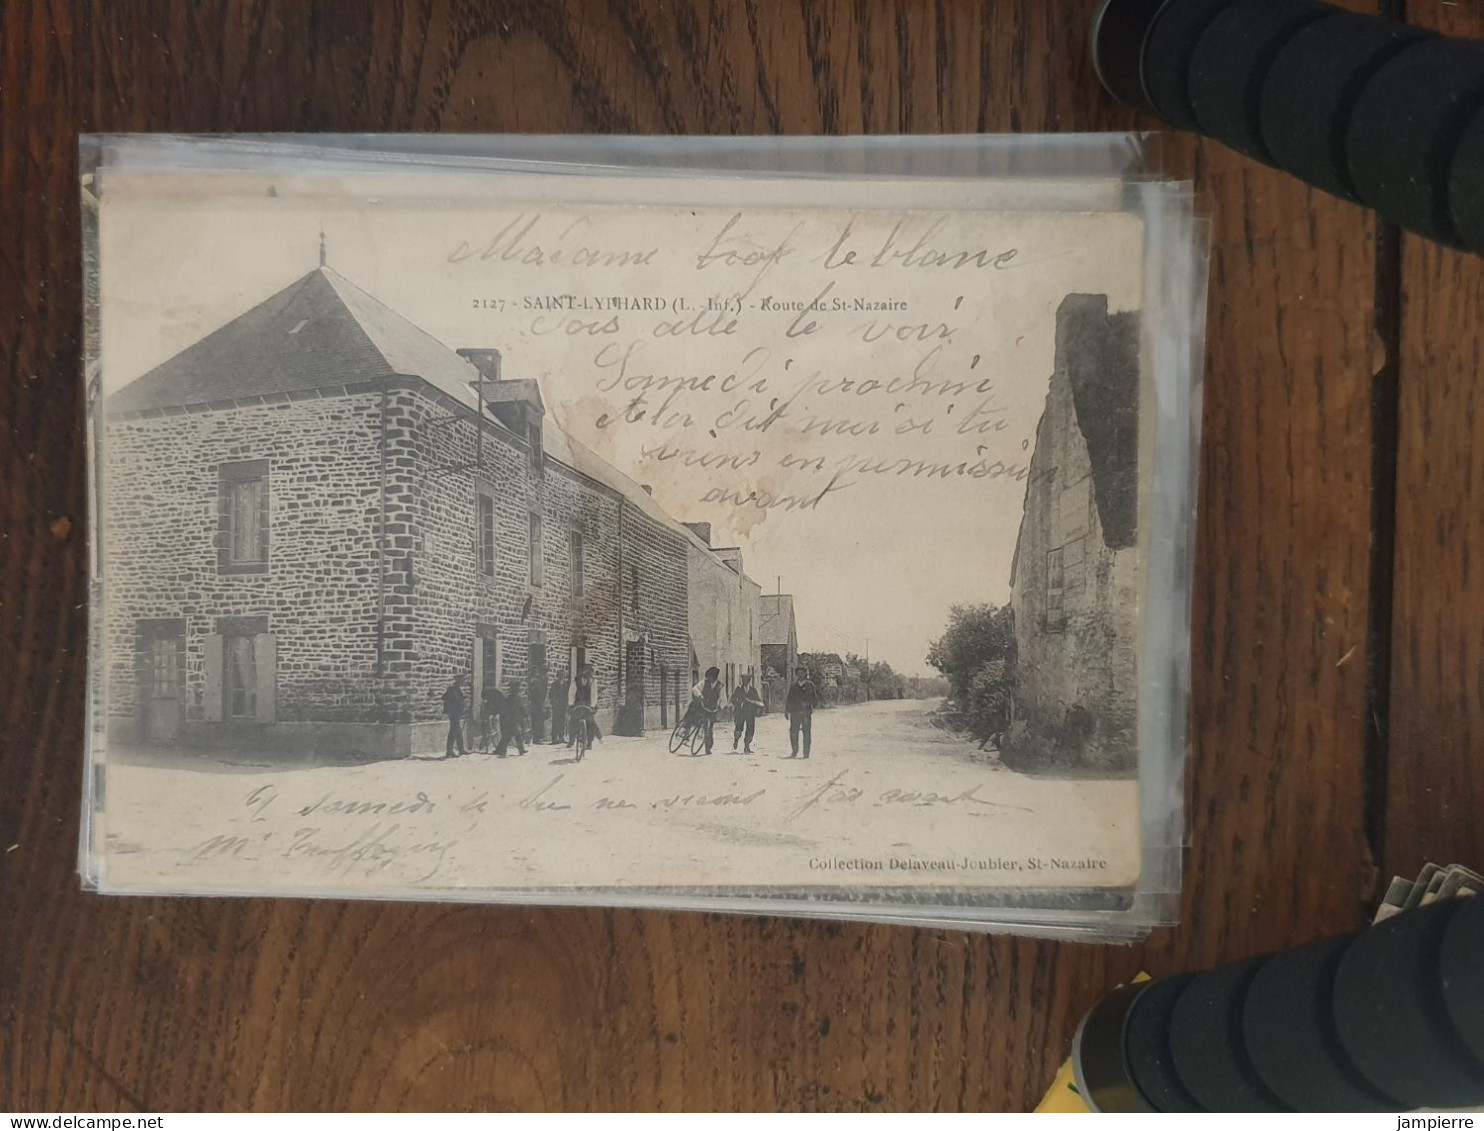 Madame trof leblanc
2127 - SAINT-LYPHARD (L.-Inf.) - Route de St-Nazaire
Sois allé le voir
Samedi prochin
dit moi si tu
viens en permission
avant
samedi si tu ne viens pas avant
Collection Delaveau-Joubier, St-Nazaire
jampierre